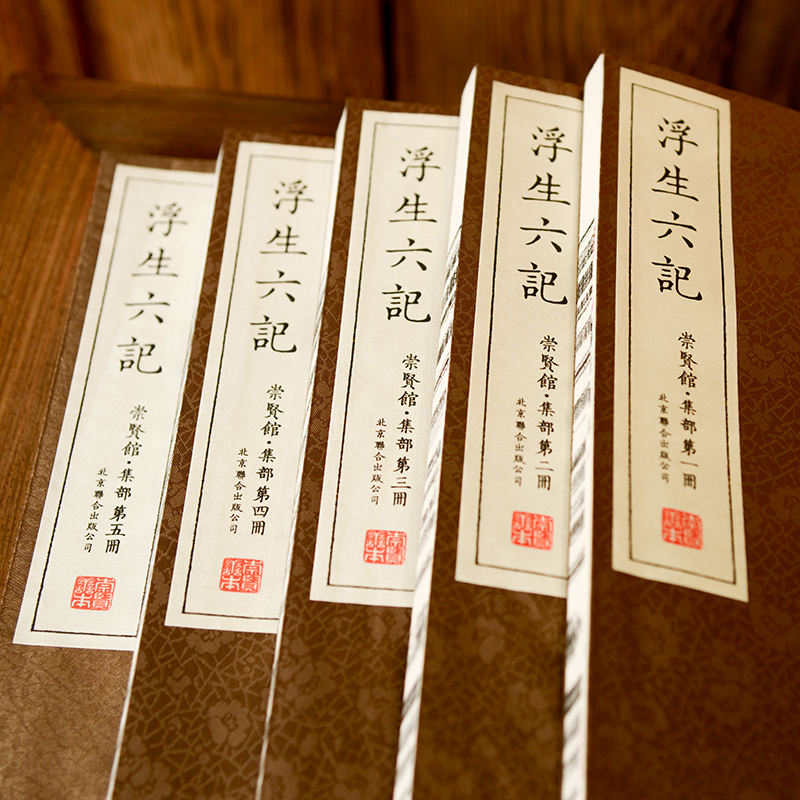 浮生六記
崇賢館·集部第一冊
北京聯合出版公司
崇賢善本
浮生六記
崇賢館·集部第二冊
北京聯合出版公司
崇賢善本
浮生六記
崇賢館·集部第三冊
北京聯合出版公司
崇賢善本
浮生六記
崇賢館·集部第四冊
北京聯合出版公司
崇賢善本
浮生六記
崇賢館·集部第五冊
北京聯合出版公司
崇賢善本